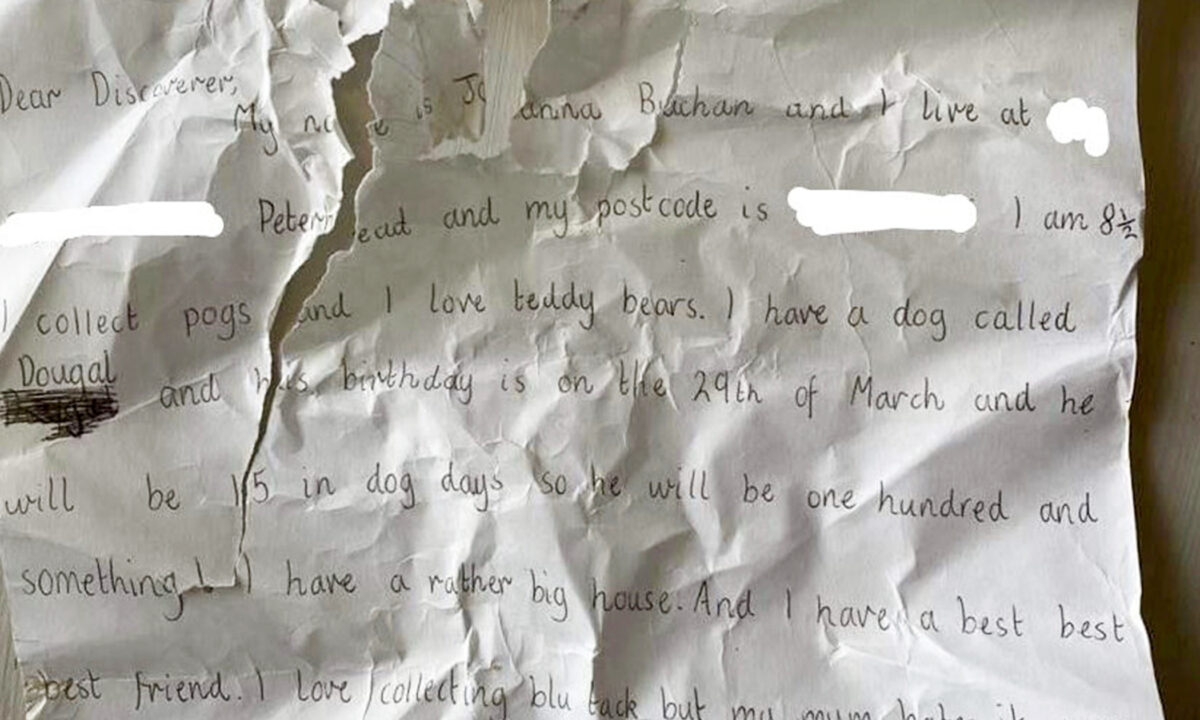 Dear Discoverer,
My na e is Jo anna Buchan and I live at
Peterh ead and my postcode is I am 8½
I collect pogs and I love teddy bears. I have a dog called
Dougal and his birthday is on the 29th of March and he
will be 15 in dog days so he will be one hundred and
something! I have a rather big house. And I have a best best
best friend. I love collecting blu tack but my mum hates it